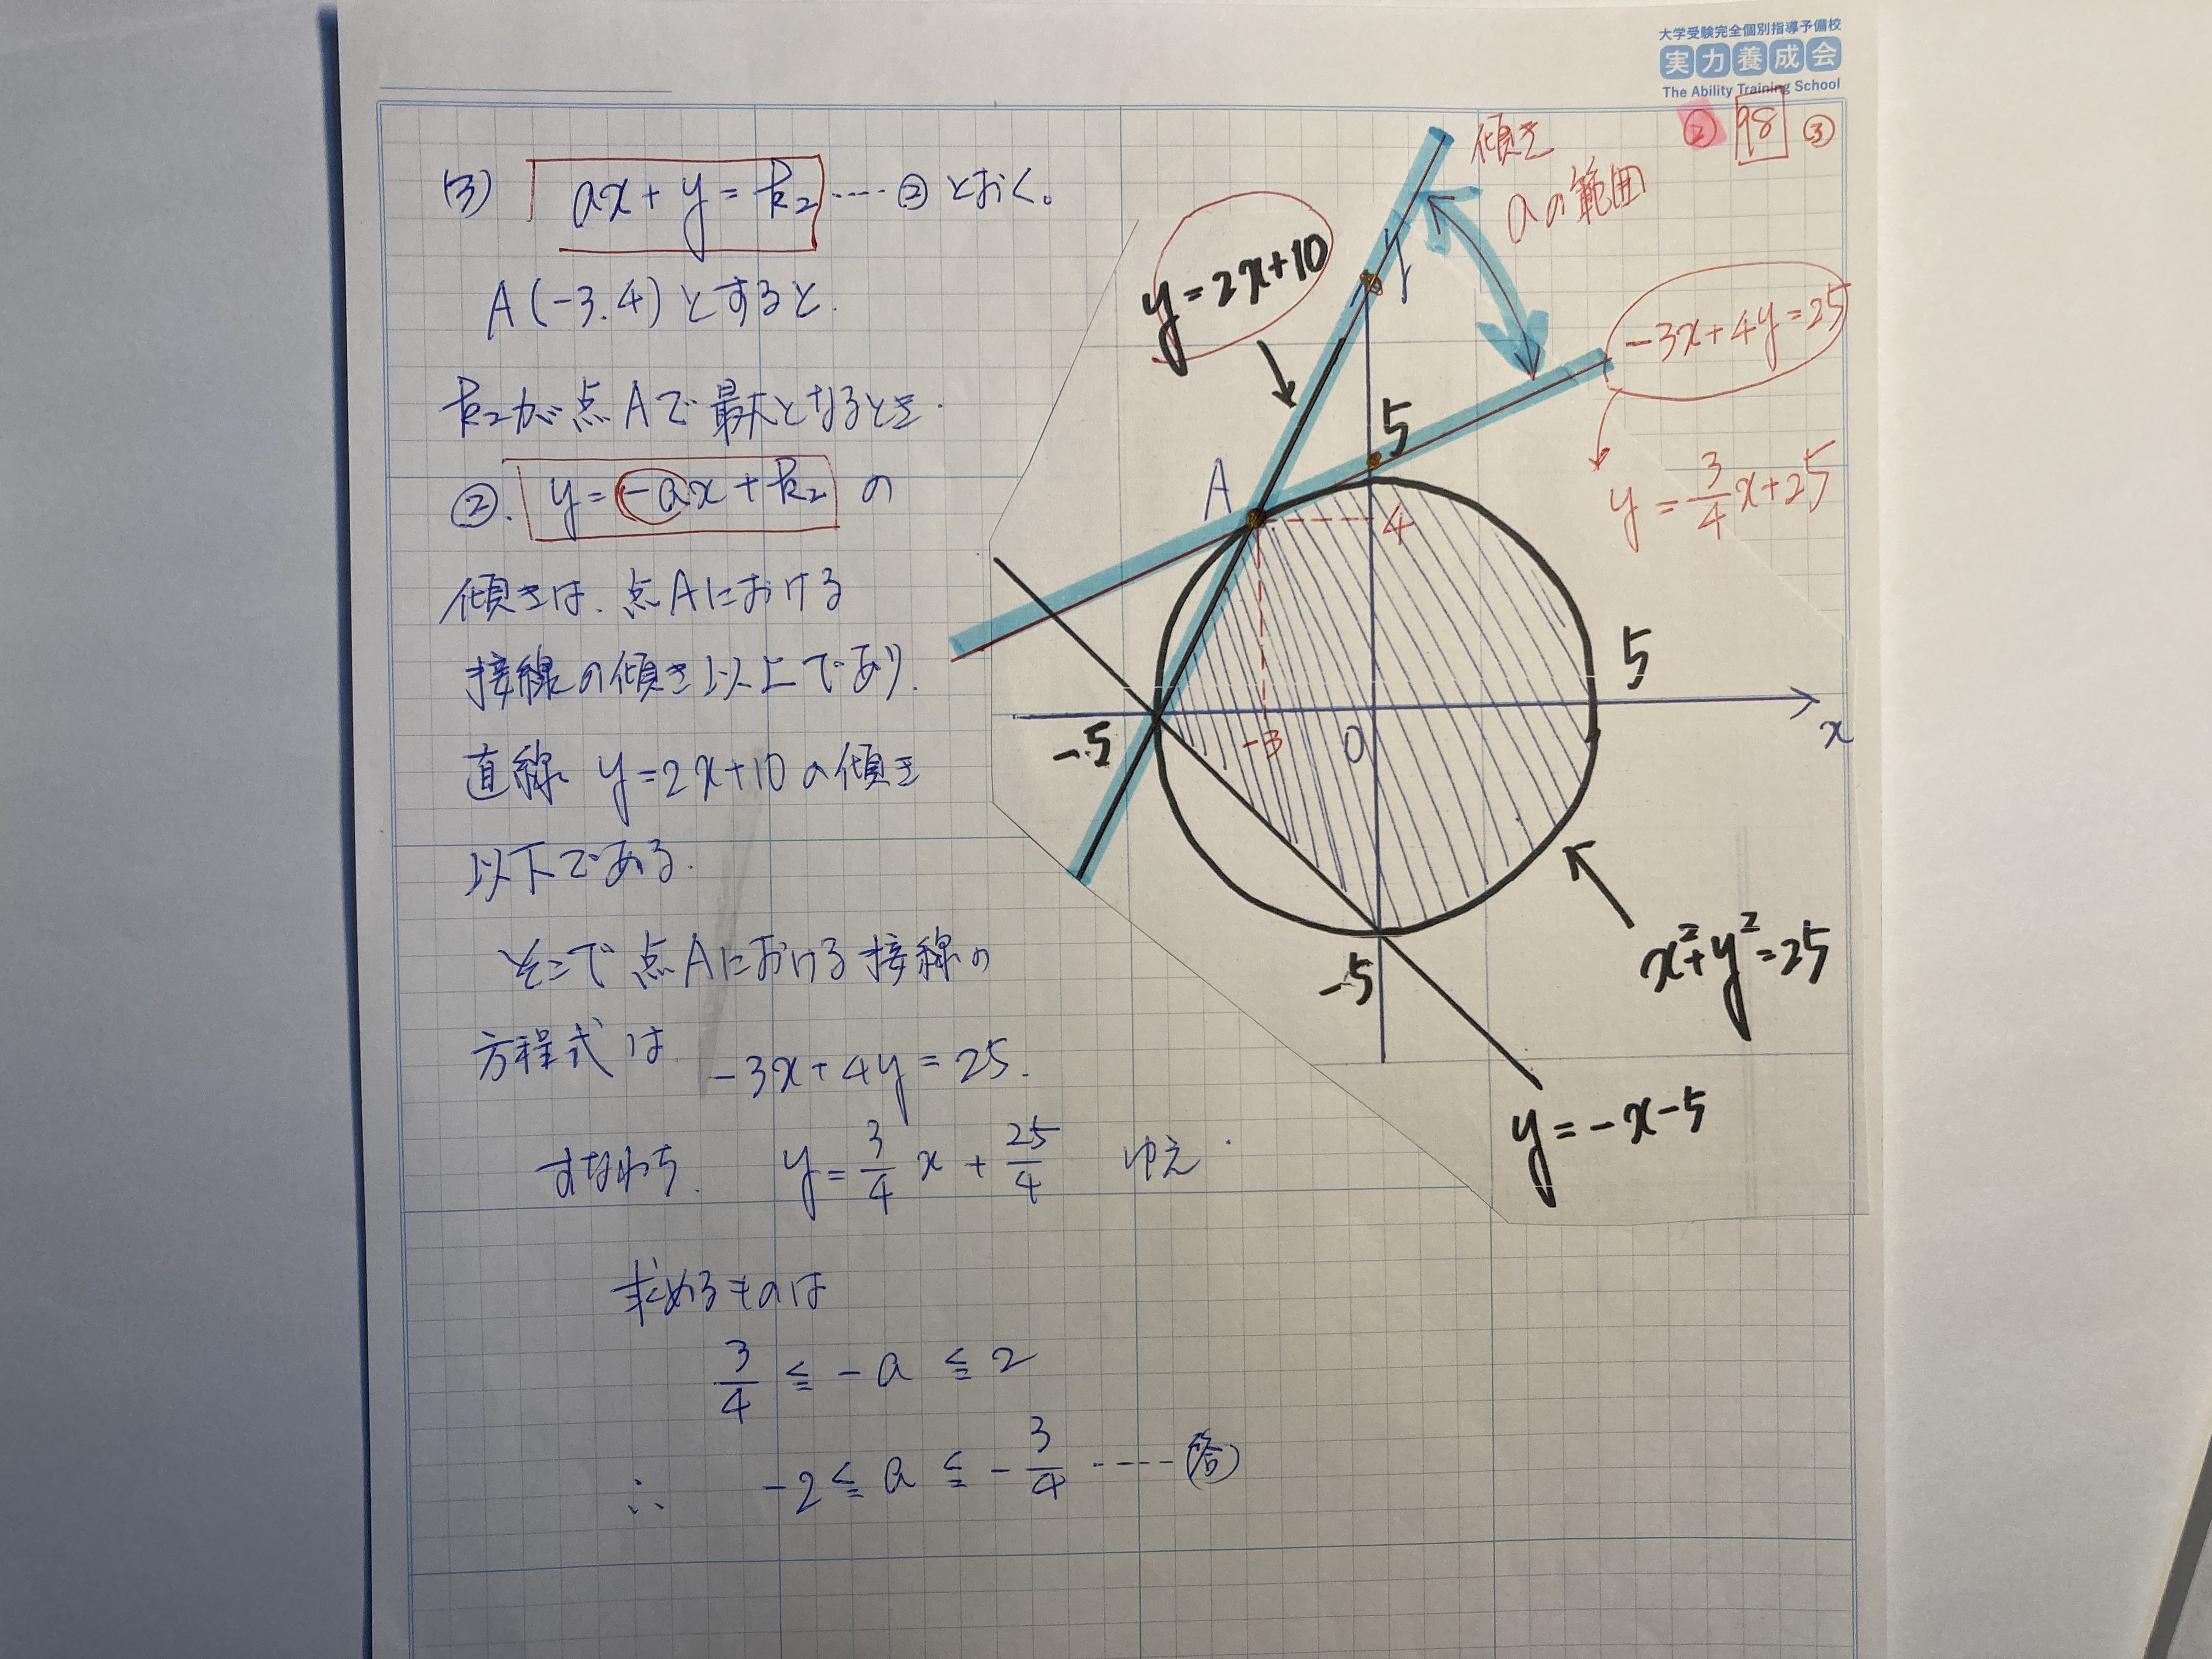 大学受験完全個別指導予備校
実力養成会
The Ability Training School
② 98 ③
(3) ax + y = k₂ ---- ② とおく。
A(-3.4)とすると.
k₂が点Aで最大となるとき.
②. y = -ax + k₂ の
傾きは. 点Aにおける
接線の傾き以上であり.
直線 y=2x+10の傾き
以下である.
そこで点Aにおける接線の
方程式は -3x+4y=25.
すなわち. y = 3/4 x + 25/4 ゆえ.
求めるものは
3/4 ≦ -a ≦ 2
∴ -2 ≦ a ≦ -3/4 ---- (答)
傾き
aの範囲
y=2x+10
y
-3x+4y=25
5
y = 3/4 x+25
A
4
5
-5
-3
0
x
-5
x²+y²=25
y=-x-5